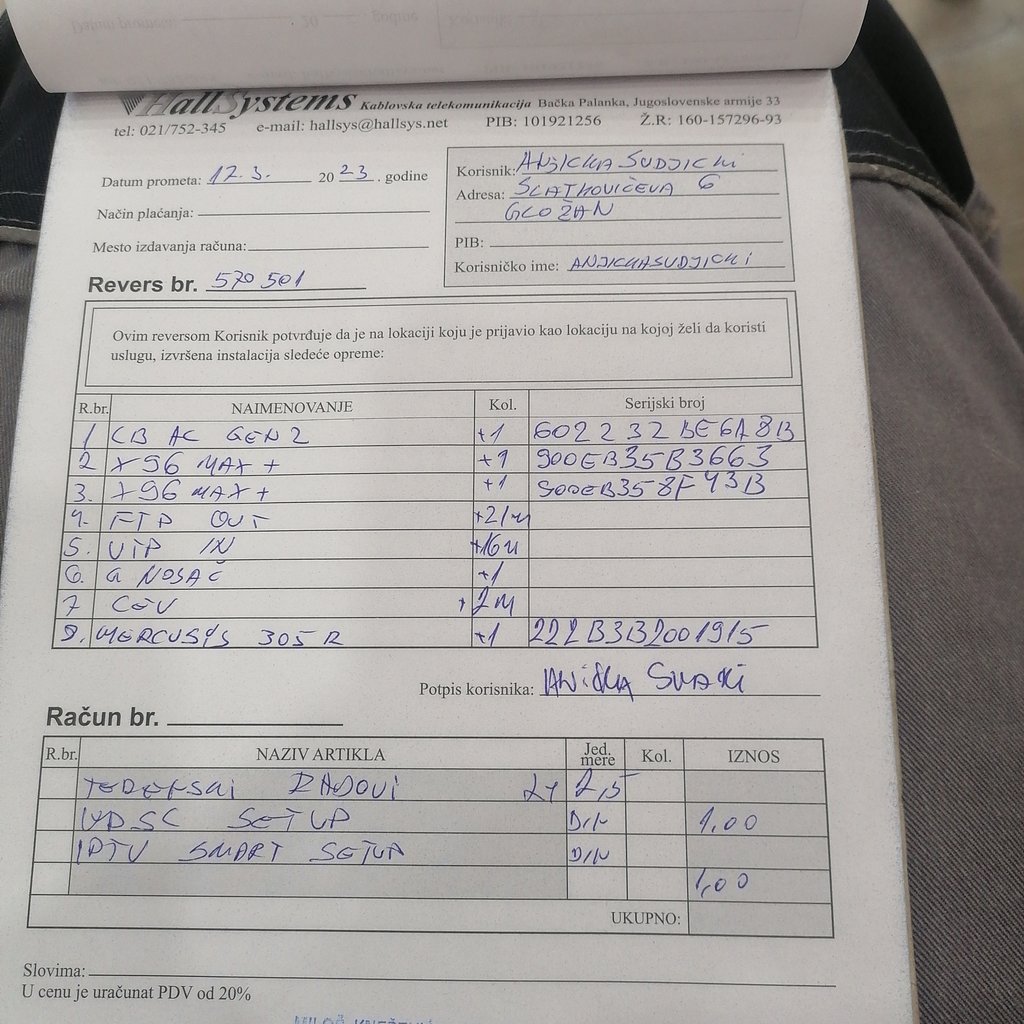 HallSystems Kablovska telekomunikacija Bačka Palanka, Jugoslovenske armije 33
tel: 021/752-345 e-mail: hallsys@hallsys.net PIB: 101921256 Ž.R: 160-157296-93
Datum prometa: 17.3. 20 23. godine
Način plaćanja:
Mesto izdavanja računa:
Revers br. 570501
Korisnik: ANJICHKA SUDJICKI
Adresa: SLATKOVIĆEVA 6
GLOŽAN
PIB:
Korisničko ime: ANJICHASUDJICKI
Ovim reversom Korisnik potvrđuje da je na lokaciji koju je prijavio kao lokaciju na kojoj želi da koristi
uslugu, izvršena instalacija sledeće opreme:
R.br. NAIMENOVANJE Kol. Serijski broj
1 CB AC GEN2 +1 602232BE6A8B
2 X96 MAX + +1 900EB35B3663
3. X96 MAX + +1 900EB358F43B
4. FTP OUT +21m
5. UTP IN +16m
6. G NOSAČ +1
7 CEV +2m
8. MERCUSYS 305R +1 222B3B2001915
Potpis korisnika:
Račun br.
R.br. NAZIV ARTIKLA Jed. mere Kol. IZNOS
TERENSKI RADOVI 2,5
VDSL SETUP DIN 1.00
IPTV SMART SETUP DIN
1,00
UKUPNO:
Slovima:
U cenu je uračunat PDV od 20%